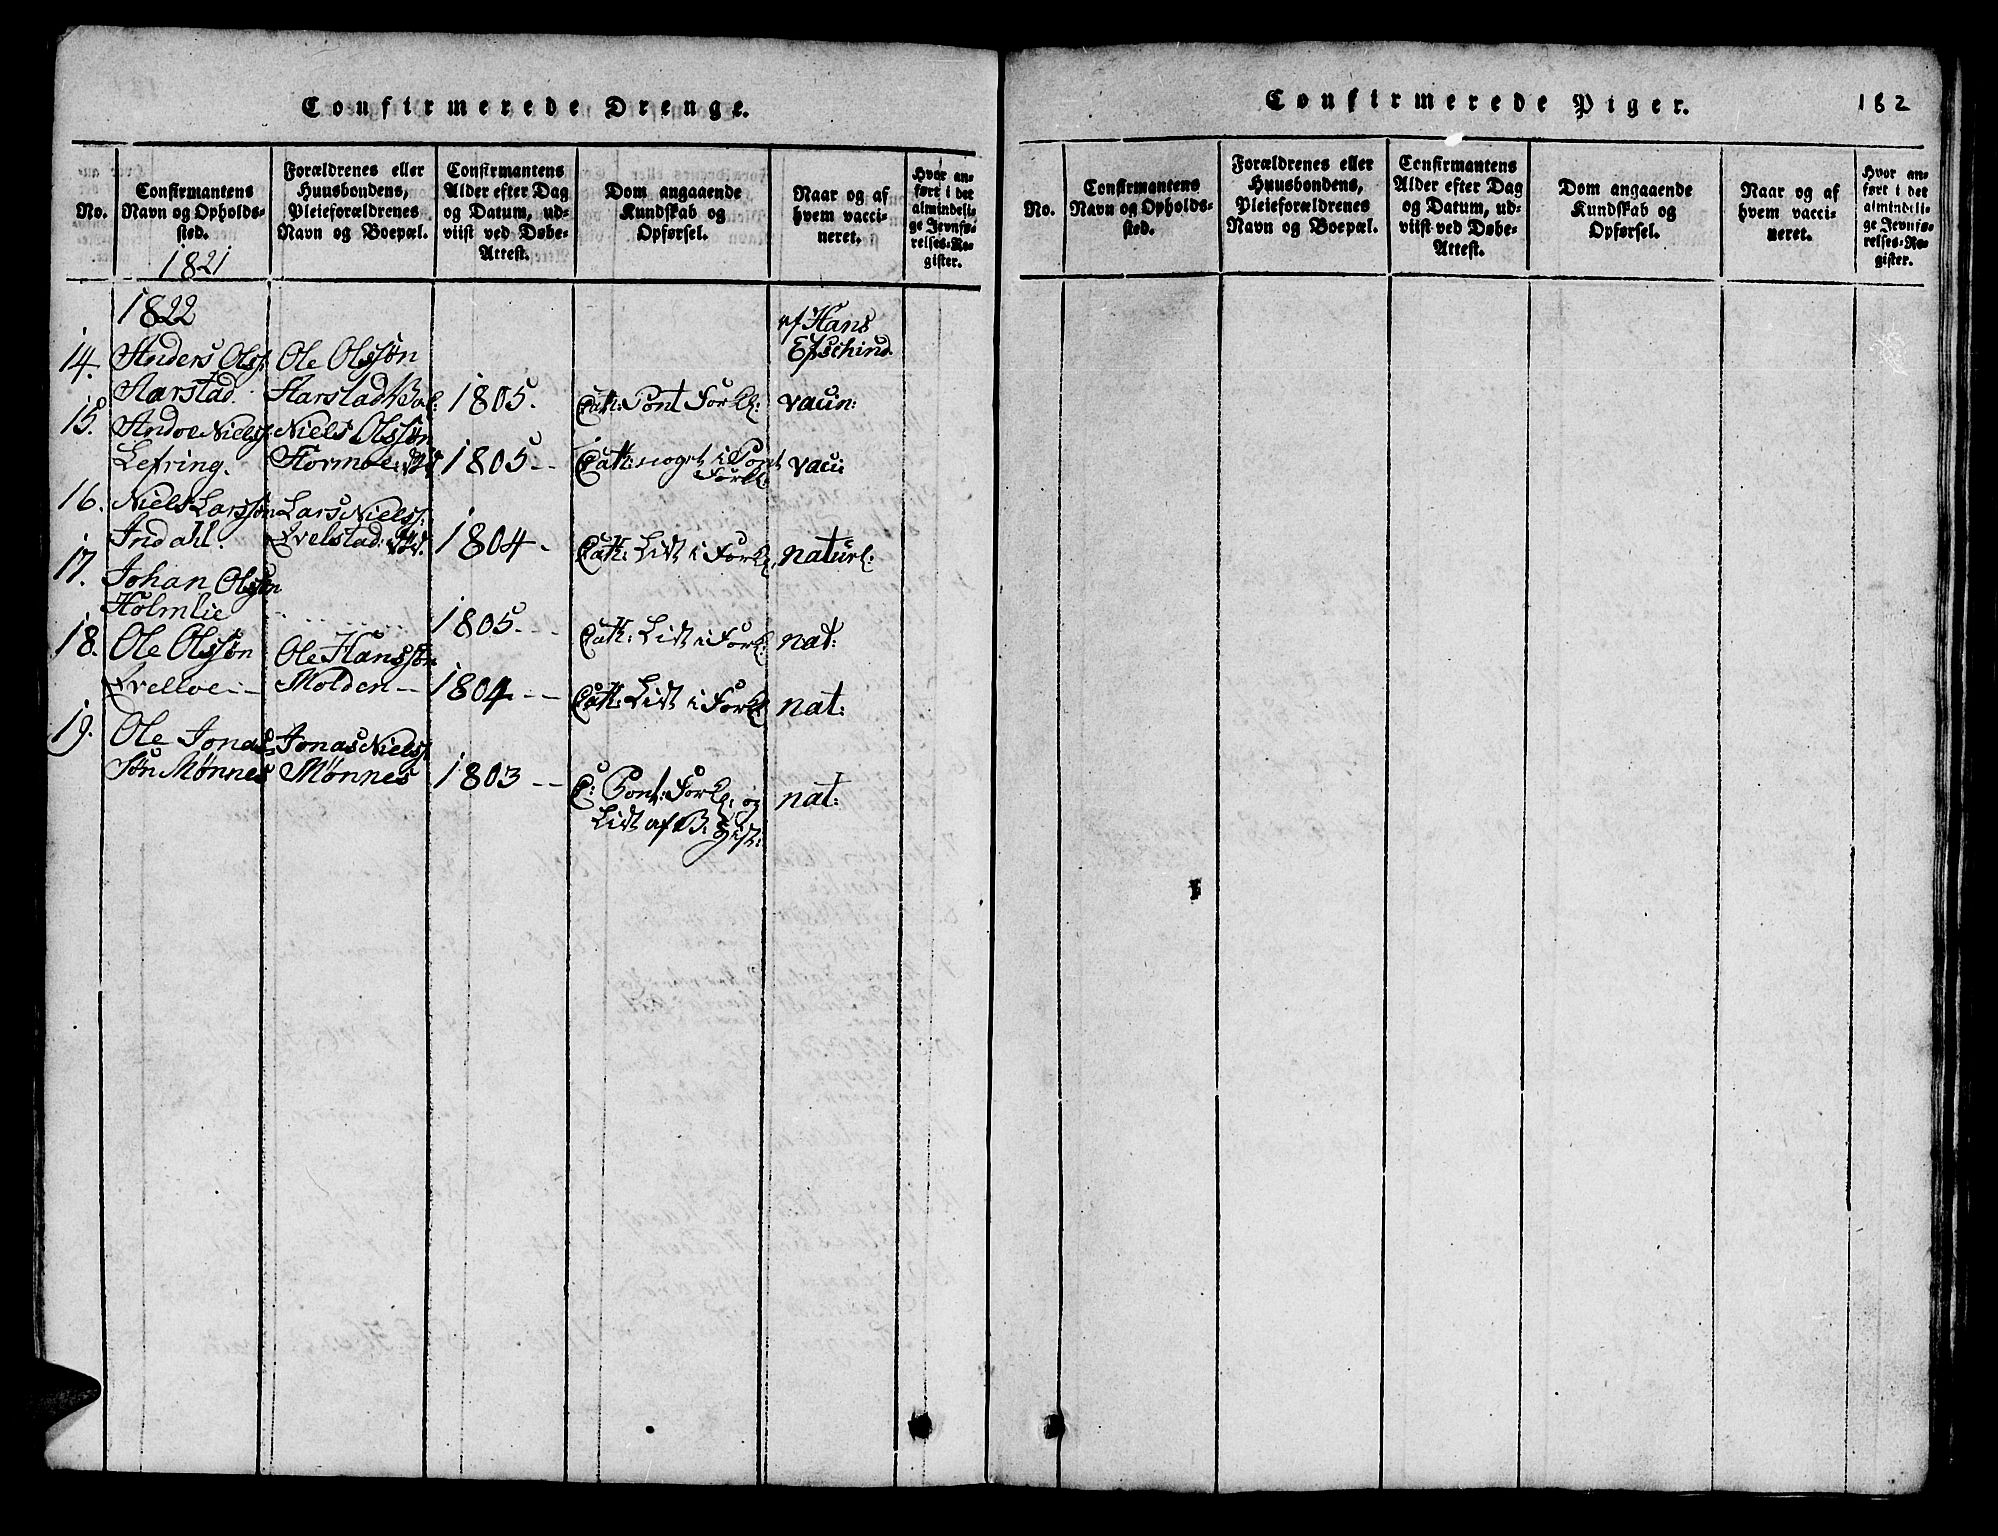 Confirmerede Drenge.
No.
Confirmantens
Navn og Opholds-
sted.
1821
Forældrenes eller
Huusbondens,
Pleieforældrenes
Navn og Boepæl.
Confirmantens
Alder efter Dag
og Datum, ud-
viist ved Døbe-
Attest.
Dom angaaende
Kundskab og
Opførsel.
Naar og af
hvem vacci-
neret.
Hvor an-
ført i det
almindeli-
ge Jevnfø-
relses-Re-
gister.
1822
af Hans
14. Anders Olsf. Ole Olssøn
Harstad. Harstad 1805. Cath: Pont Forkl: vacin:
15. Nielsf. Niels Olssøn
Lefring. 1805 - - Cath: noget i Pont vaci:
Forkl:
16. Niels Larssøn Lars Nielsf:
Indahl. 1804 - Cath: Lidt i Forkl. naturl:
17. Johan Olssøn
Holmlie . . . . . . . . 1805 - - - Cath: Lidt i Forkl. nat:
18. Ole Olssøn Ole Hanssøn
Molden - - 1804 - - Cath: Lidt i Forkl. nat:
19. Ole Jonas- Jonas Nielsf.
søn Mønnes Mønnes 1803 - - C: Pont: Forkl: og nat:
Lidt af B:
Confirmerede Piger.
182
No.
Confirmantens
Navn og Opholds-
sted.
Forældrenes eller
Huusbondens,
Pleieforældrenes
Navn og Boepæl.
Confirmantens
Alder efter Dag
og Datum, ud-
viist ved Døbe-
Attest.
Dom angaaende
Kundskab og
Opførsel.
Naar og af
hvem vacci-
neret.
Hvor an-
ført i det
almindeli-
ge Jevnfø-
relses-Re-
gister.